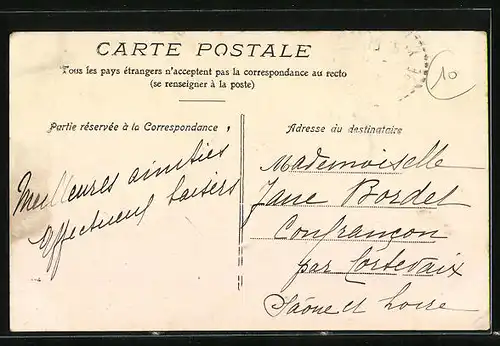 CARTE POSTALE
Tous les pays étrangers n'acceptent pas la correspondance au recto
(se renseigner à la poste)
10
Partie réservée à la Correspondance
Adresse du destinataire
Meilleures amitiés
affectueux baisers
Mademoiselle
Jane Bordet
Confrançon
par Cortevaix
Saône et Loire